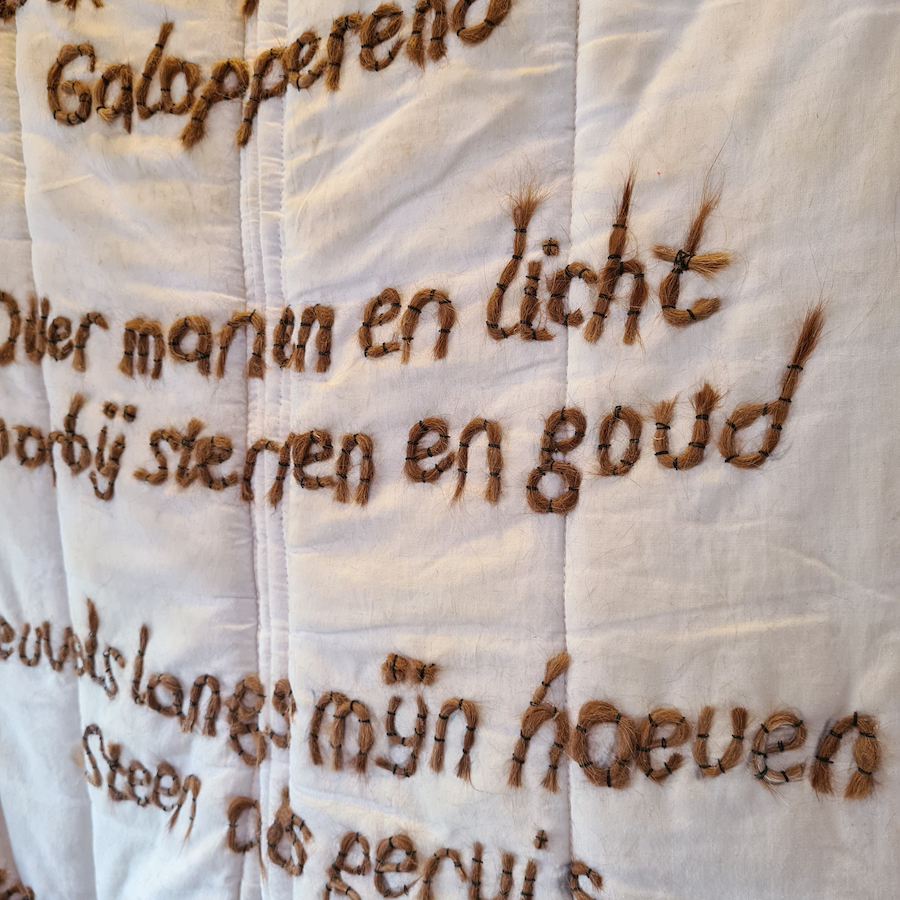 Galopperend
Over manen en licht
oorbij sterren en goud
euvels langs mijn hoeven
Steen als geruis